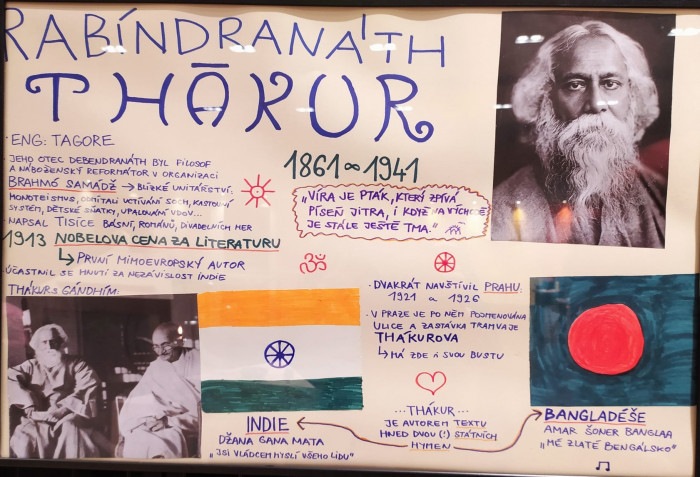 RABÍNDRANÁTH
THĀKUR
ENG: TAGORE
1861 ∞ 1941
· JEHO OTEC DEBENDRANÁTH BYL FILOSOF
A NÁBOŽENSKÝ REFORMÁTOR V ORGANIZACI
BRAHMÓ SAMÁDŽ → BLÍZKÉ UNITÁŘSTVÍ:
MONOTEISMUS, ODMÍTALI UCTÍVÁNÍ SOCH, KASTOVNÍ
SYSTÉM, DĚTSKÉ SŇATKY, UPALOVÁNÍ VDOV...
· NAPSAL TISÍCE BÁSNÍ, ROMÁNŮ, DIVADELNÍCH HER
1913 NOBELOVA CENA ZA LITERATURU
↳ PRVNÍ MIMOEVROPSKÝ AUTOR
· ÚČASTNIL SE HNUTÍ ZA NEZÁVISLOST INDIE
THÁKUR S GÁNDHÍM:
„VÍRA JE PTÁK, KTERÝ ZPÍVÁ
PÍSEŇ JITRA, I KDYŽ NA VÝCHODĚ
JE STÁLE JEŠTĚ TMA."
ॐ
· DVAKRÁT NAVŠTÍVIL PRAHU:
1921 a 1926
· V PRAZE JE PO NĚM POJMENOVÁNA
ULICE A ZASTÁVKA TRAMVAJE
THÁKUROVA
↳ MÁ ZDE I SVOU BUSTU
...THÁKUR...
JE AUTOREM TEXTU
HNED DVOU (!) STÁTNÍCH
HYMEN
INDIE
DŽANA GANA MATA
„JSI VLÁDCEM MYSLÍ VŠEHO LIDU"
BANGLADÉŠE
AMAR ŠONER BANGLAA
„MÉ ZLATÉ BENGÁLSKO"